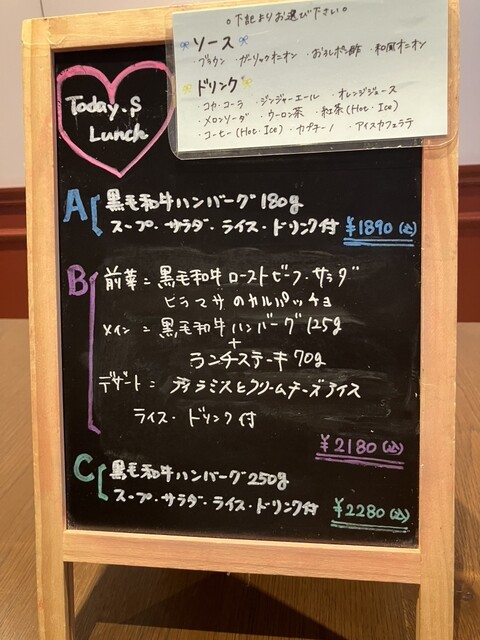 ○下記よりお選び下さい○
ソース
・ブラウン ・ガーリックオニオン ・おろしポン酢 ・和風オニオン
ドリンク
・コカ・コーラ ・ジンジャーエール ・オレンジジュース
・メロンソーダ ・ウーロン茶 ・紅茶(Hot・Ice)
・コーヒー(Hot・Ice) ・カプチーノ ・アイスカフェラテ
Today.S
Lunch
A 黒毛和牛ハンバーグ180g
スープ・サラダ・ライス・ドリンク付 ¥1890(込)
B 前菜=黒毛和牛ローストビーフ・サラダ
ヒラマサのカルパッチョ
メイン=黒毛和牛ハンバーグ125g
+
ランチステーキ70g
デザート=プチティラミスとクリームチーズアイス
ライス・ドリンク付
¥2180(込)
C 黒毛和牛ハンバーグ250g
スープ・サラダ・ライス・ドリンク付 ¥2280(込)